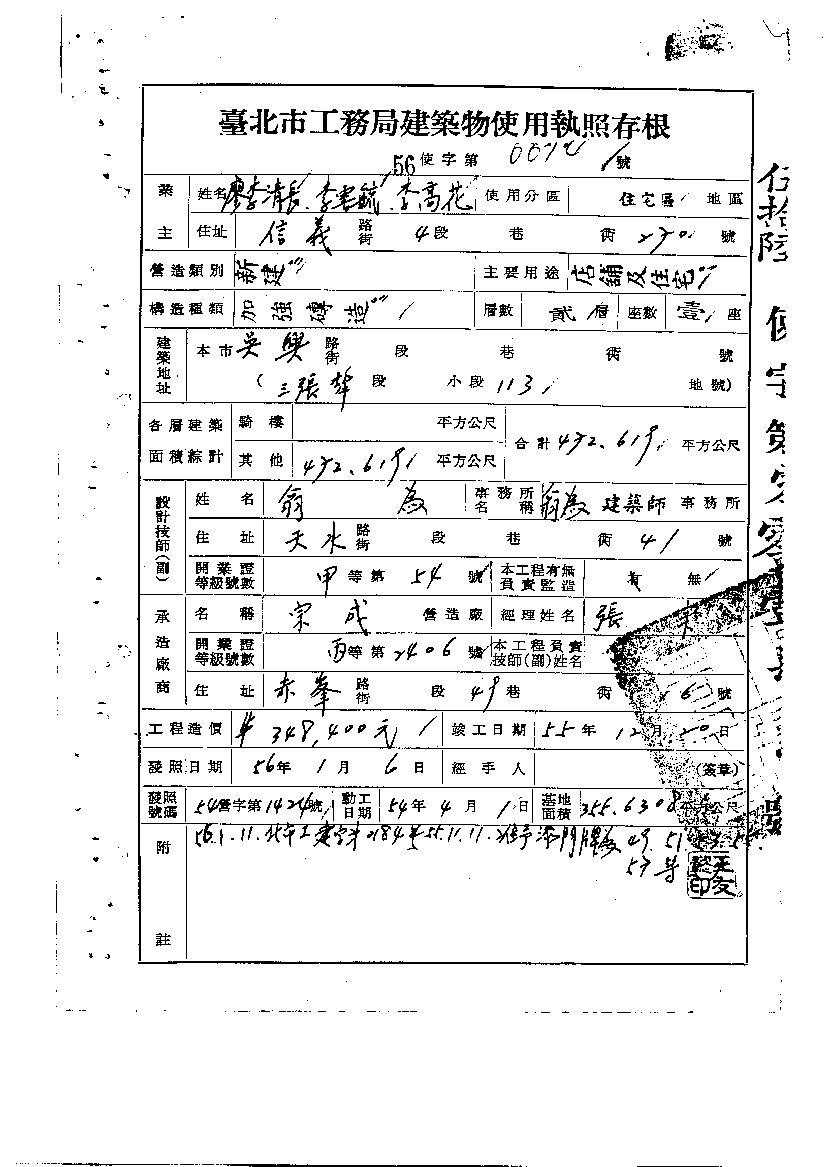 臺北市工務局建築物使用執照存根
56 使字第 號
業主 姓名 廖李清長、李書毓、李高花 使用分區 住宅區 地區
住址 信義 路街 4段 巷 衖 號
營造類別 新建 主要用途 店舖及住宅
構造種類 加強磚造 層數 貳層 座數 壹座
建築地址 本市 吳興 路街 段 巷 衖 號
(三張犂段 小段 113 地號)
各層建築面積綜計 騎樓 平方公尺 合計 472.619 平方公尺
其他 472.619 平方公尺
設計技師(副) 姓名 翁為 事務所名稱 翁為 建築師事務所
住址 天水 路街 段 巷 衖 41 號
開業證等級號數 甲等第 54 號 本工程有無負責監造 有 無
承造廠商 名稱 宗成 營造廠 經理姓名 張
開業證等級號數 丙等第 2406 號 本工程負責技師(副)姓名
住址 赤峯 路街 段 49巷 衖 16號
工程造價 $348,400元 竣工日期 55年12月20日
發照日期 56年1月6日 經手人 (簽章)
發照號碼 54營字第1424號 動工日期 54年4月1日 基地面積 355.6308 平方公尺
附註 56.1.11.北市工建字 2184 55.11.11. 添門牌為 49. 51. 53. 55.
57號
伍拾陸 使字第 零